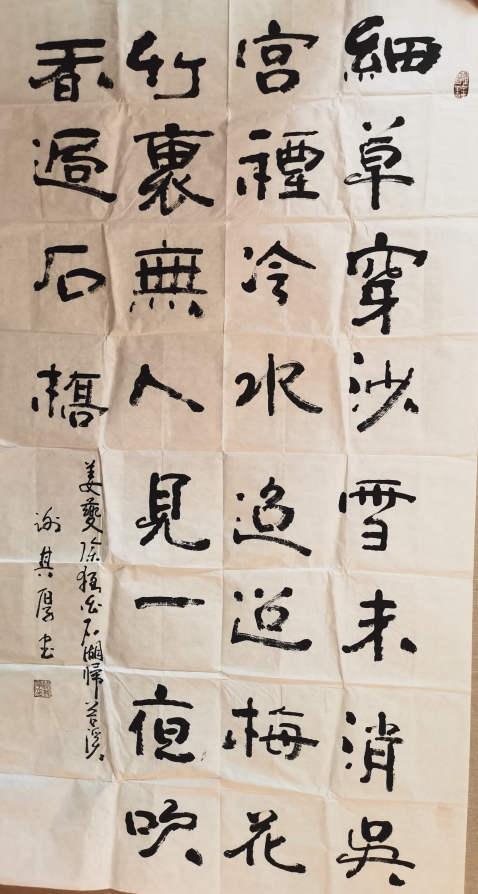 細草穿沙雪未消吳
宮煙冷水迢迢梅花
竹裏無人見一夜吹
香過石橋
姜夔除夜自石湖歸苕溪
謝其厚書